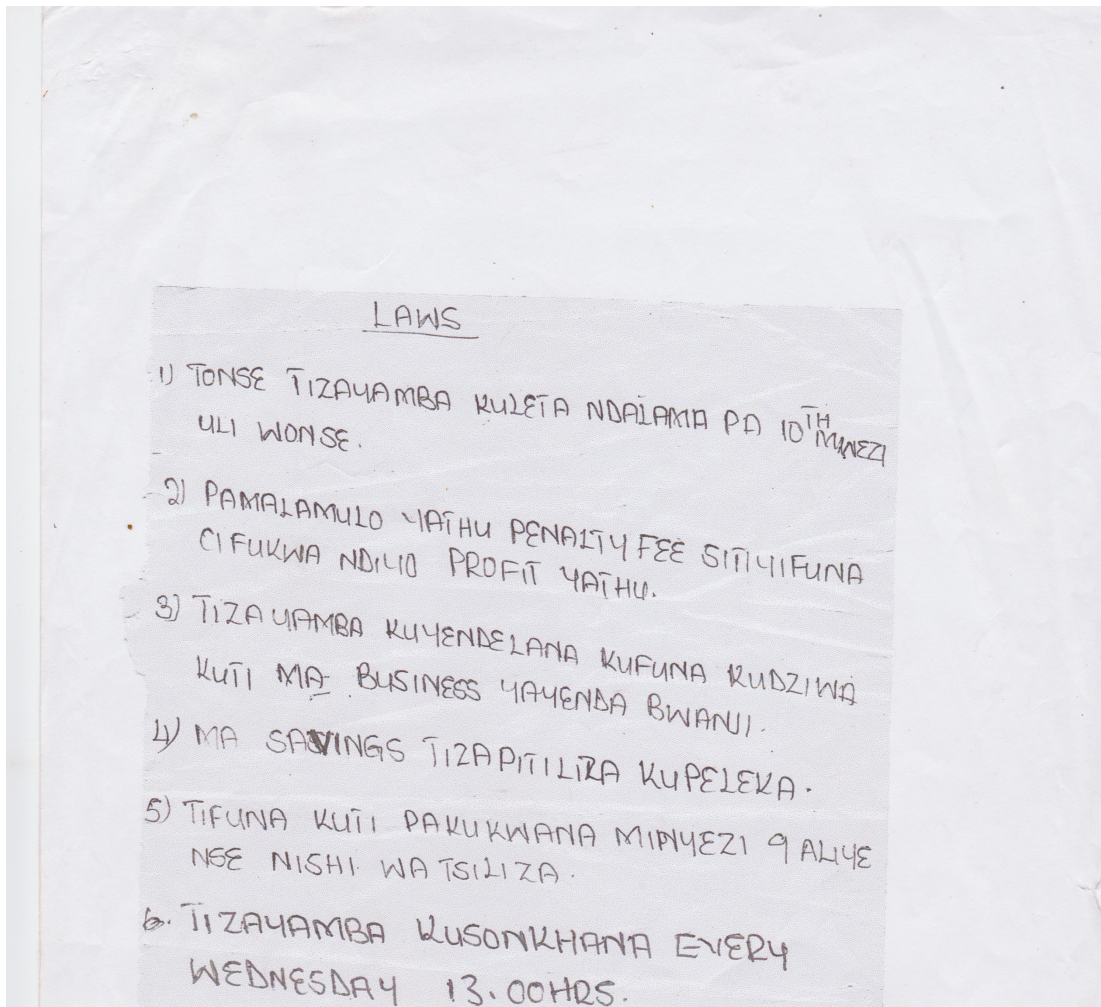 LAWS
1) TONSE TIZAYAMBA KULETA NDALAMA PA 10TH MWEZI
ULI WONSE.
2) PAMALAMULO YATHU PENALTY FEE SITIYIFUNA
CIFUKWA NDIYO PROFIT YATHU.
3) TIZAYAMBA KUYENDELANA KUFUNA KUDZIWA
KUTI MA BUSINESS YAYENDA BWANJI.
4) MA SAVINGS TIZAPITILIZA KUPELEKA.
5) TIFUNA KUTI PAKUKWANA MINYEZI 9 ALIYE
NSE NISHI WATSILIZA.
6. TIZAYAMBA KUSONKHANA EVERY
WEDNESDAY 13.00HRS.